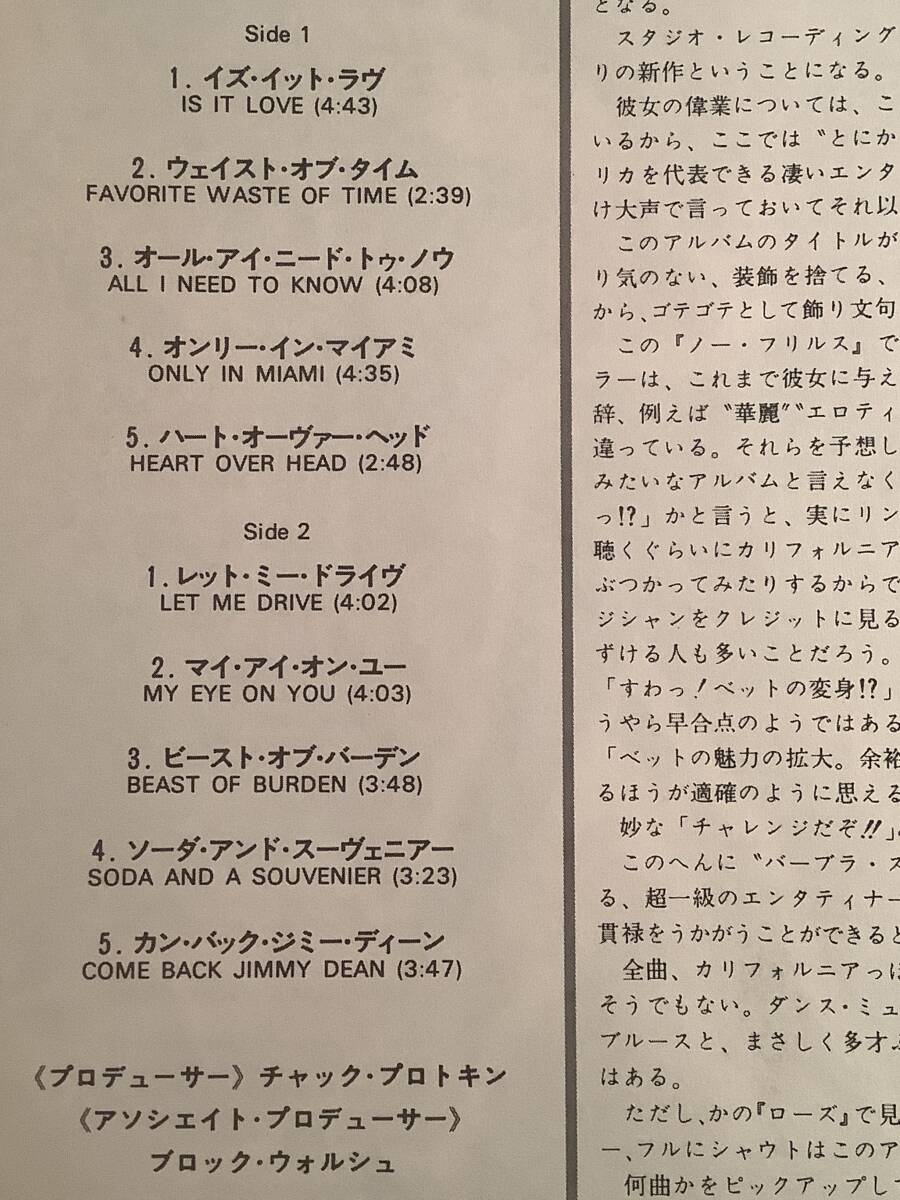 Side 1
1. イズ・イット・ラヴ
IS IT LOVE (4:43)
2. ウェイスト・オブ・タイム
FAVORITE WASTE OF TIME (2:39)
3. オール・アイ・ニード・トゥ・ノウ
ALL I NEED TO KNOW (4:08)
4. オンリー・イン・マイアミ
ONLY IN MIAMI (4:35)
5. ハート・オーヴァー・ヘッド
HEART OVER HEAD (2:48)
Side 2
1. レット・ミー・ドライヴ
LET ME DRIVE (4:02)
2. マイ・アイ・オン・ユー
MY EYE ON YOU (4:03)
3. ビースト・オブ・バーデン
BEAST OF BURDEN (3:48)
4. ソーダ・アンド・スーヴェニアー
SODA AND A SOUVENIER (3:23)
5. カン・バック・ジミー・ディーン
COME BACK JIMMY DEAN (3:47)
《プロデューサー》チャック・プロトキン
《アソシエイト・プロデューサー》
ブロック・ウォルシュ
となる。
スタジオ・レコーディング
りの新作ということになる。
彼女の偉業については、こ
いるから、ここでは〝とにか
リカを代表できる凄いエンタ
け大声で言っておいてそれ以
このアルバムのタイトルが
り気のない、装飾を捨てる、
から、ゴテゴテとして飾り文句
この『ノー・フリルス』で
ラーは、これまで彼女に与え
辞、例えば〝華麗〞〝エロティ
違っている。それらを予想し
みたいなアルバムと言えなく
っ!?」かと言うと、実にリン
聴くぐらいにカリフォルニア
ぶつかってみたりするからで
ジシャンをクレジットに見る
ずける人も多いことだろう。
「すわっ！ベットの変身!?」
うやら早合点のようではある
「ベットの魅力の拡大。余裕
るほうが適確のように思える
妙な「チャレンジだぞ!!」
このへんに〝バーブラ・ス
る、超一級のエンタティナー
貫禄をうかがうことができると
全曲、カリフォルニアっぽ
そうでもない。ダンス・ミュ
ブルースと、まさしく多才ぶ
はある。
ただし、かの『ローズ』で見
ー、フルにシャウトはこのア
何曲かをピックアップして